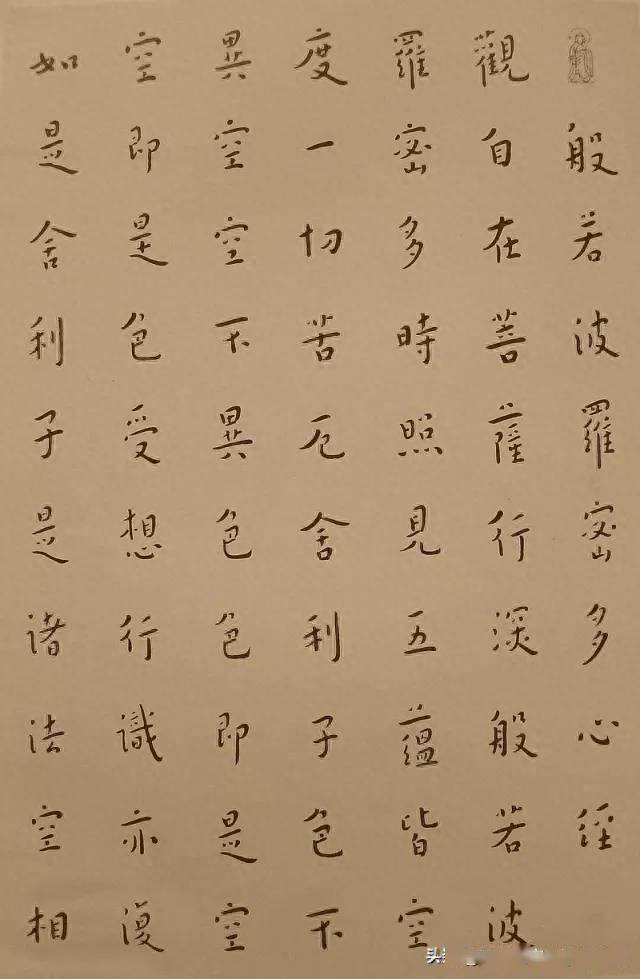 般若波羅密多心経
觀自在菩薩行深般若波
羅密多時照見五蘊皆空
度一切苦厄舍利子色不
異空空不異色色即是空
空即是色受想行識亦復
如是舍利子是诸法空相